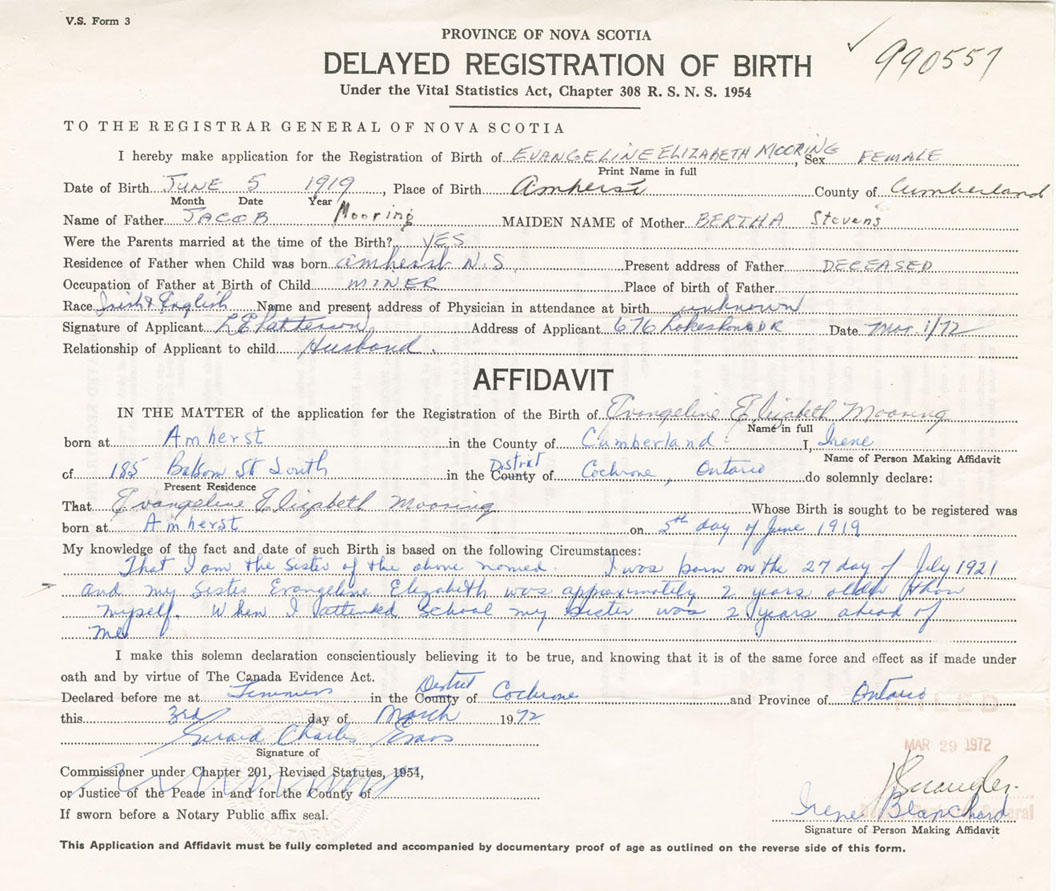 V.S. Form 3
PROVINCE OF NOVA SCOTIA
990557
DELAYED REGISTRATION OF BIRTH
Under the Vital Statistics Act, Chapter 308 R. S. N. S. 1954
TO THE REGISTRAR GENERAL OF NOVA SCOTIA
I hereby make application for the Registration of Birth of EVANGELINE ELIZABETH MOORING, Sex FEMALE
Print Name in full
Date of Birth JUNE 5 1919, Place of Birth Amherst County of Cumberland
Month Date Year
Name of Father JACOB Mooring MAIDEN NAME of Mother BERTHA Stevens
Were the Parents married at the time of the Birth? YES
Residence of Father when Child was born Amherst N.S. Present address of Father DECEASED
Occupation of Father at Birth of Child MINER Place of birth of Father
Race Irish & English Name and present address of Physician in attendance at birth unknown
Signature of Applicant L E Patterson Address of Applicant 676 Lakeshore DR Date Mar. 1/72
Relationship of Applicant to child Husband.
AFFIDAVIT
IN THE MATTER of the application for the Registration of the Birth of Evangeline Elizabeth Mooring
Name in full
born at Amherst in the County of Cumberland I, Irene
Name of Person Making Affidavit
of 185 Balsam St South in the District County of Cochrane, Ontario do solemnly declare:
Present Residence
That Evangeline Elizabeth Mooring Whose Birth is sought to be registered was
born at Amherst on 5th day of June 1919
My knowledge of the fact and date of such Birth is based on the following Circumstances:
That I am the Sister of the above named. I was born on the 27 day of July 1921
and my Sister Evangeline Elizabeth was approximately 2 years older than
myself. When I attended School my sister was 2 years ahead of
me.
I make this solemn declaration conscientiously believing it to be true, and knowing that it is of the same force and effect as if made under
oath and by virtue of The Canada Evidence Act.
Declared before me at Timmins in the District County of Cochrane and Province of Ontario
this 3rd day of March 1972
FILED
MAR 29 1972
Gerard Charles Evans
Signature of
Commissioner under Chapter 201, Revised Statutes, 1954,
or Justice of the Peace in and for the County of
Irene Blanchard
If sworn before a Notary Public affix seal.
Signature of Person Making Affidavit
This Application and Affidavit must be fully completed and accompanied by documentary proof of age as outlined on the reverse side of this form.